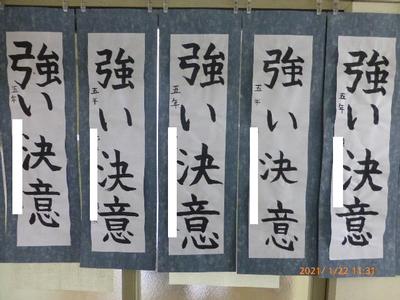 強い決意
五年
強い決意
五年
強い決意
五年
強い決意
五年
強い決意
五年
2021/1/22 11:31